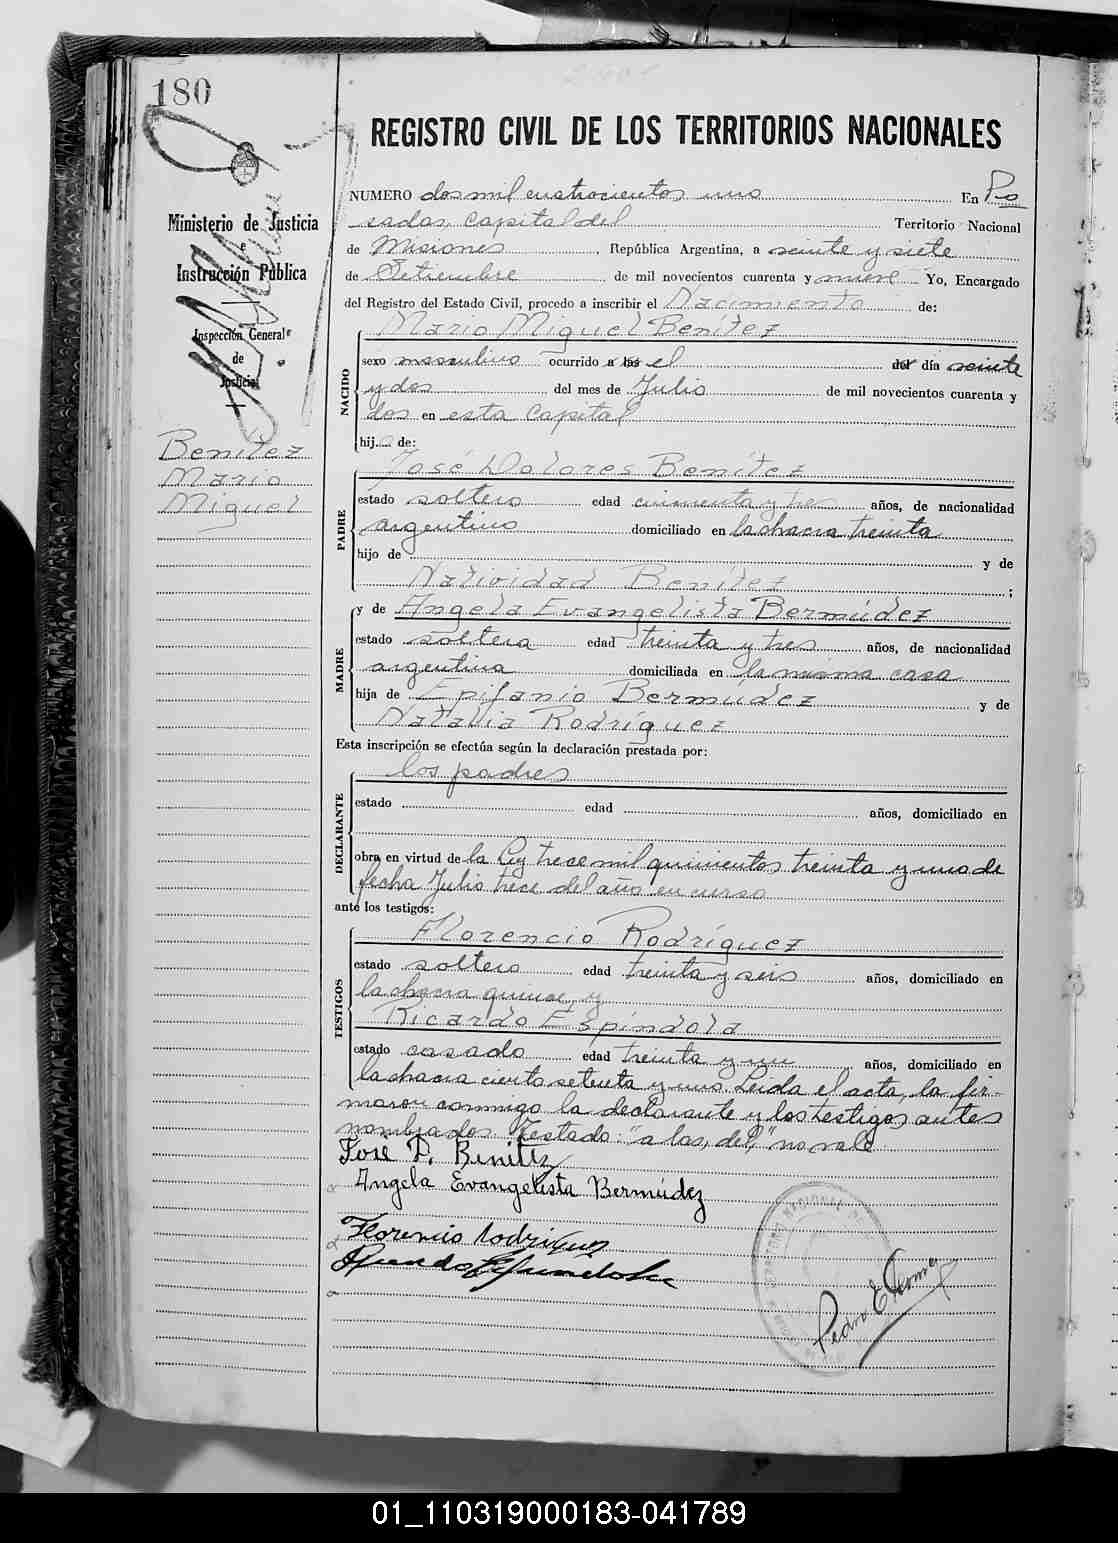 180
REGISTRO CIVIL DE LOS TERRITORIOS NACIONALES
Ministerio de Justicia
e
Instrucción Pública
Inspección General
de
Justicia
Benítez
Mario
Miguel
NUMERO dos mil cuatrocientos uno En Po
sadas, capital del Territorio Nacional
de Misiones, República Argentina, a veinte y siete
de Setiembre de mil novecientos cuarenta y nueve Yo, Encargado
del Registro del Estado Civil, procedo a inscribir el Nacimiento de:
NACIDO
Mario Miguel Benítez
sexo masculino ocurrido a las el del día veinte
y dos del mes de Julio de mil novecientos cuarenta y
dos en esta Capital
hijo de:
PADRE
José Dolores Benítez
estado soltero edad cincuenta y tres años, de nacionalidad
argentino domiciliado en la chacra treinta
hijo de y de
Natividad Benítez ;
MADRE
y de Angela Evangelista Bermúdez
estado soltera edad treinta y tres años, de nacionalidad
argentina domiciliada en la misma casa
hija de Epifanio Bermúdez y de
Natalia Rodríguez
Esta inscripción se efectúa según la declaración prestada por:
DECLARANTE
los padres
estado edad años, domiciliado en
obra en virtud de la Ley trece mil quinientos treinta y uno de
fecha Julio trece del año en curso
ante los testigos:
TESTIGOS
Florencio Rodríguez
estado soltero edad treinta y seis años, domiciliado en
la chacra quince, y
Ricardo Espíndola
estado casado edad treinta y un años, domiciliado en
la chacra ciento setenta y uno Leída el acta, la fir-
maron conmigo la declarante y los testigos antes
nombrados. Testado: "a las, del," no vale
José D. Benitez
Angela Evangelista Bermúdez
Florencio Rodriguez
Ricardo Espindola
Pedro E
01_110319000183-041789